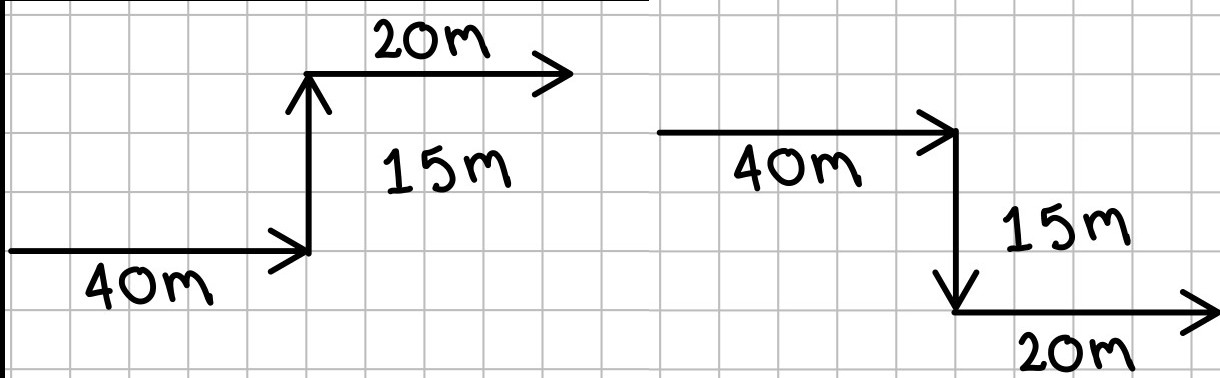 20m
15m
40m
40m
15m
20m